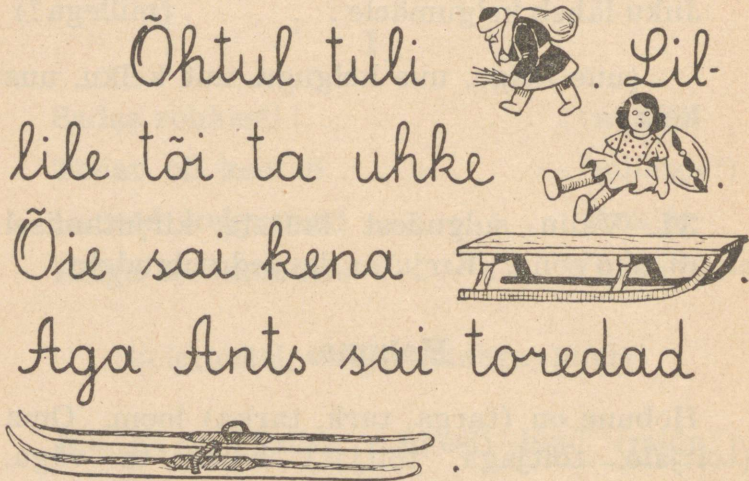 Õhtul tuli . Lil-
lile tõi ta uhke .
Õie sai kena .
Aga Ants sai toredad
.